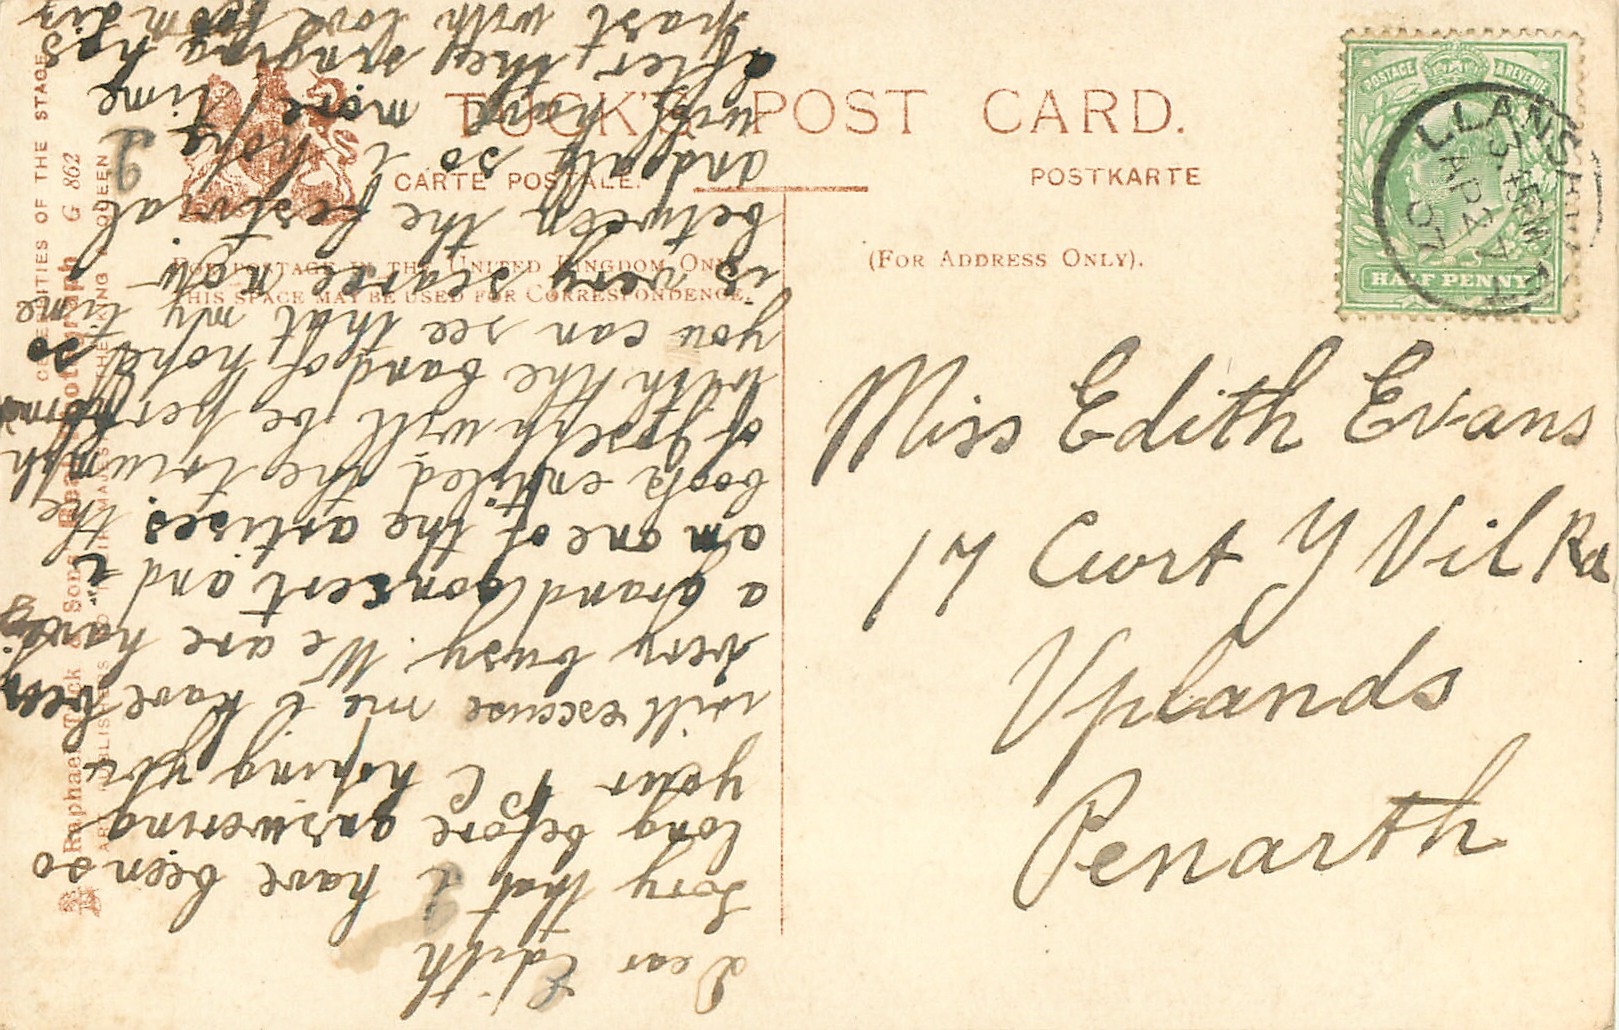 TUCK'S POST CARD.
CARTE POSTALE.
POSTKARTE
FOR POSTAGE IN THE UNITED KINGDOM ONLY
THIS SPACE MAY BE USED FOR CORRESPONDENCE.
(FOR ADDRESS ONLY).
POSTAGE & REVENUE
HALF PENNY
3.15 PM
AP 27
07
Miss Edith Evans
17 Curt Y Vil Rd
Uplands
Penarth
Dear Edith
Sory that I have been so
long before answering
your PC hoping you
will escuse me I have been
very busy. We are having
a grand concert and I
am one of the artises. the
book entitled the triumph
of Joseph will be performd
with the band of hope so
you can see that my time
is very scarse now
between the festival
and all so I hope I
will have more time
after, they singing has
past with love from
CELEBRITIES OF THE STAGE
Raphael Tuck & Sons' Real Photograph G 862
ART PUBLISHERS TO THEIR MAJESTIES THE KING & QUEEN